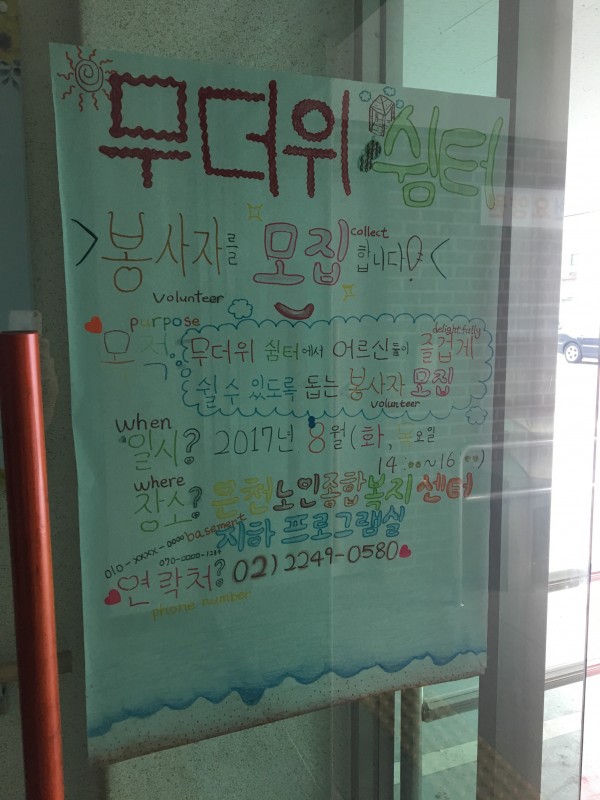 무더위 쉼터
봉사자를 모집 collect 합니다
volunteer
purpose
목적: 무더위 쉼터에서 어르신들이 즐겁게 delightfully
쉴 수 있도록 돕는 봉사자 모집
volunteer
when
일시? 2017년 8월(화, 목요일
14:00~16:00)
where
장소? 은천노인종합복지센터
basement 지하 프로그램실
010-xxxx-0000
070-0000-1234
연락처? 02)2249-0580
phone number